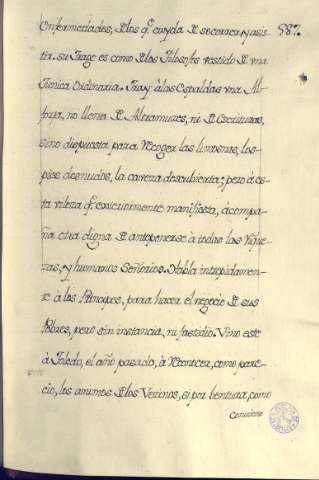 587
Enfermedades, delos qe. cuyda de socorrer, y asis-
tir. su Trage es como delos Filosofos vestido de vna
Tunica Ordinaria. Tray à las Espaldas vna Al-
forja, no llena de Altramuzes, ni de Escrituras,
sino dispuesta para Recoger las limosnas, los
pies desnudos, la caveza descubierta; pero à es-
ta vileza qe. exteriormente manifiesta, acompa-
ña otra digna de anteponerse à todas las Rique-
zas, y humanos Señorios. Habla intrepidamen-
te à los Principes, para hacer el negocio de sus
Pobres, pero sin instancia, ni fastidio. Vino este
à Toledo, el año pasado, à Reconocer, como pare-
cio, los animos delos Vecinos, si por bentura, como